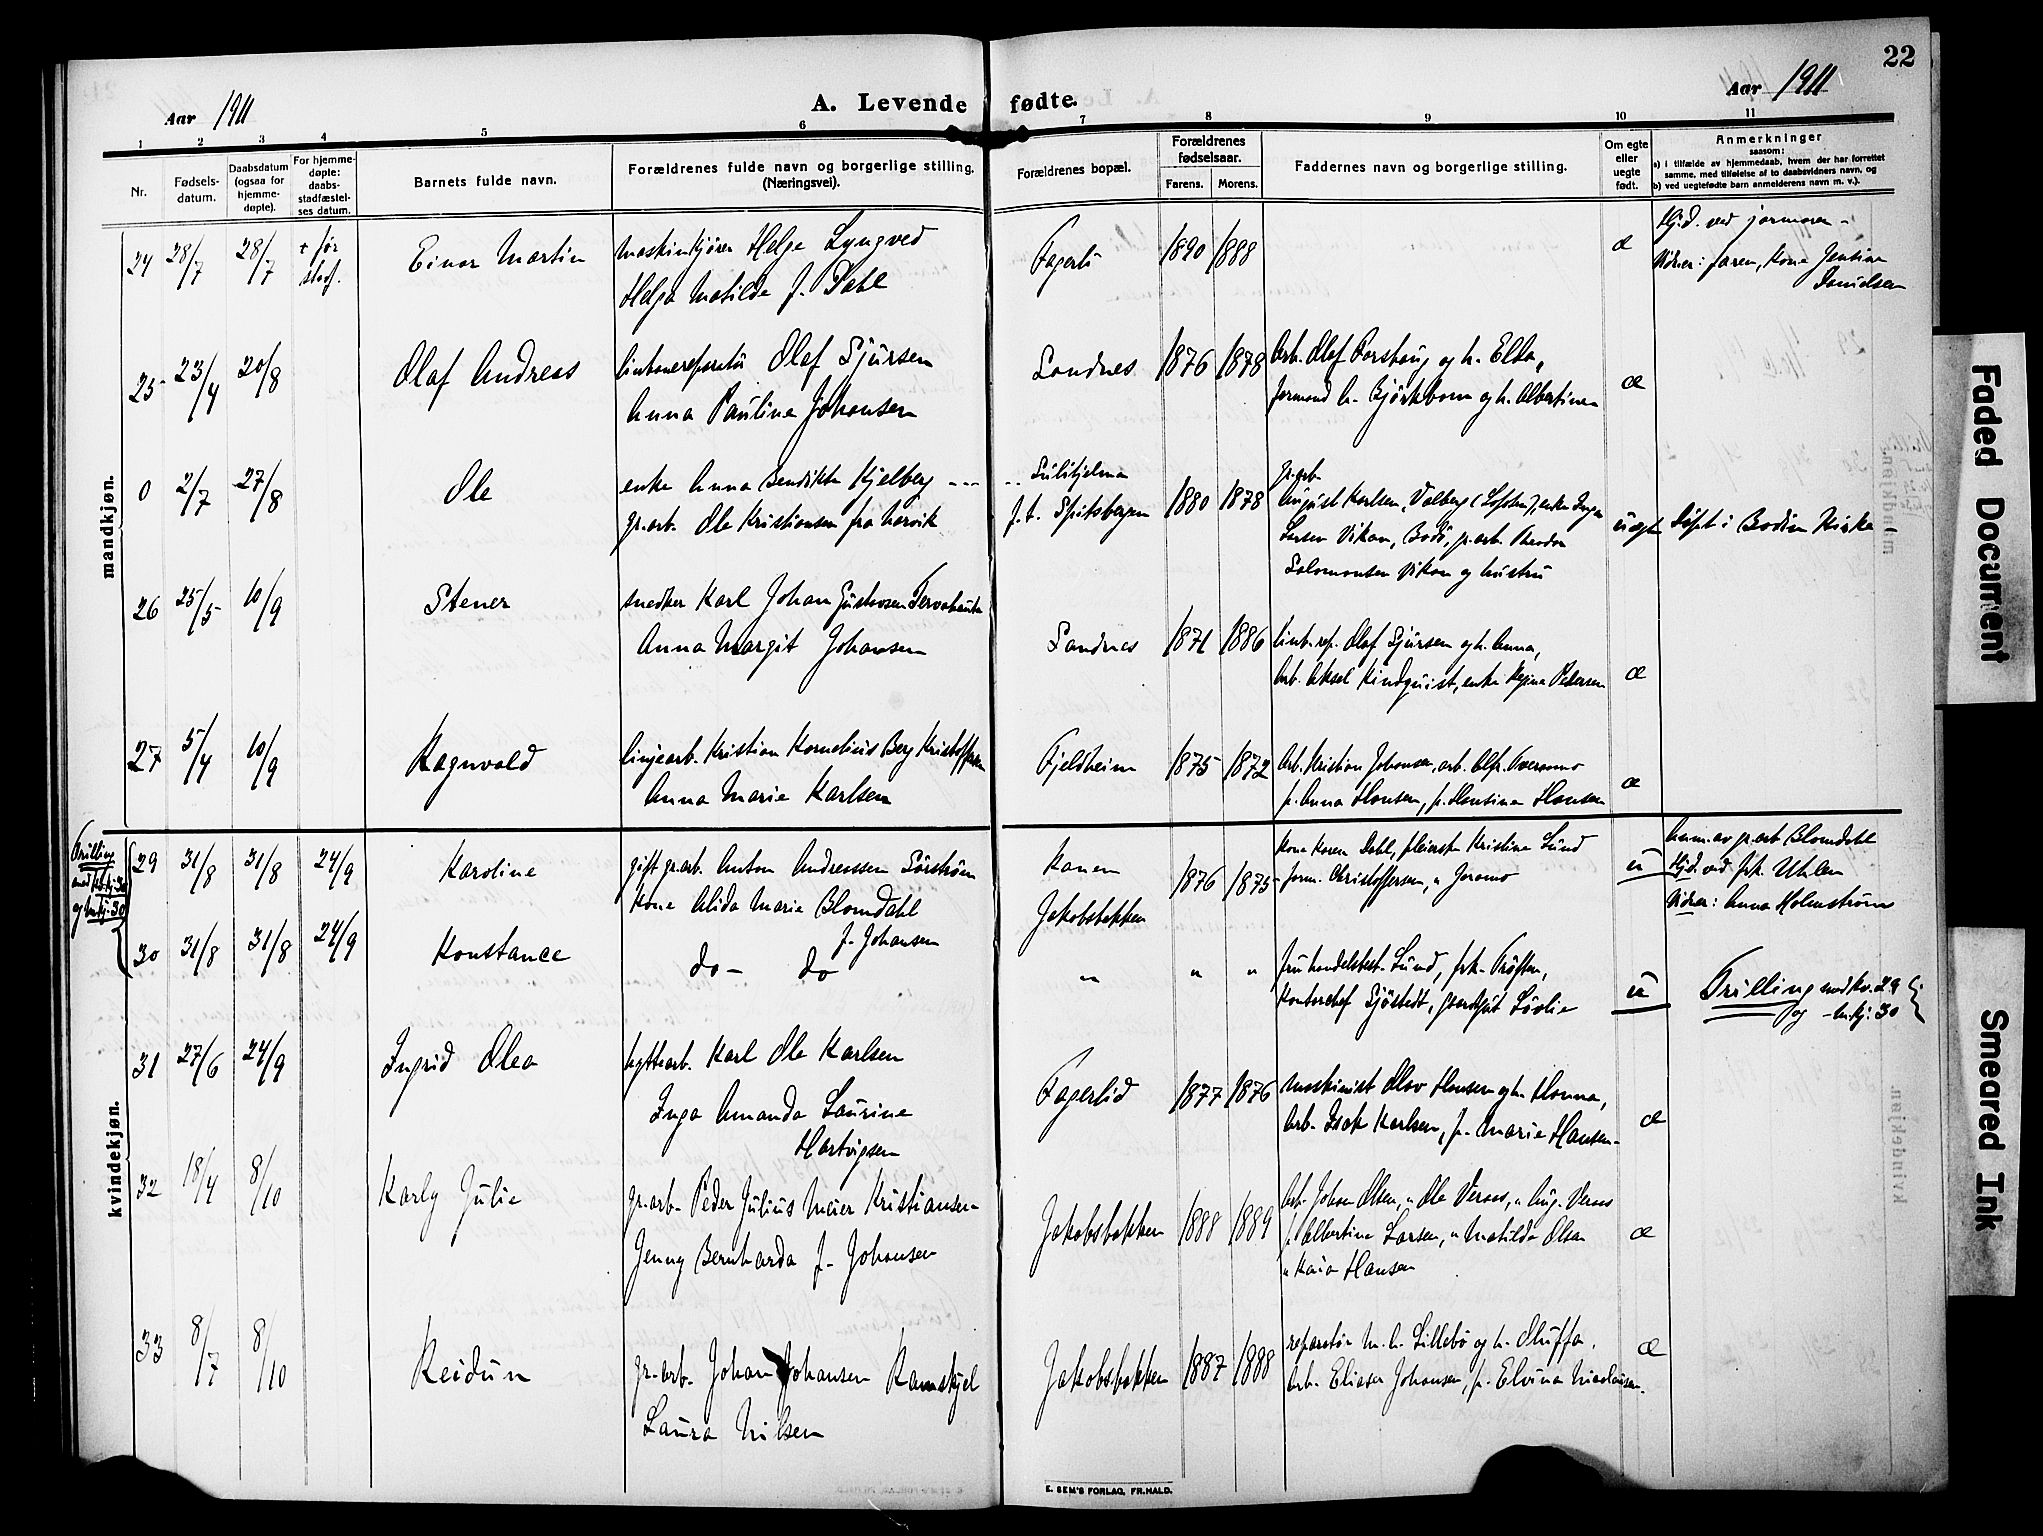 22
Aar 1911
A. Levende fødte.
Aar 1911
1 2 3 4 5 6 7 8 9 10 11
Nr.
Fødsels-
datum.
Daabsdatum
(ogsaa for
hjemme-
døpte).
For hjemme-
døpte:
daabs-
stadfæstel-
ses datum.
Barnets fulde navn.
Forældrenes fulde navn og borgerlige stilling.
(Næringsvei).
Forældrenes bopæl.
Forældrenes
fødselsaar.
Farens. Morens.
Faddernes navn og borgerlige stilling.
Om egte
eller
uegte
født.
Anmerkninger
saasom:
a) i tilfælde av hjemmedaab, hvem der har forrettet
samme, med tilføielse af to daabsvidners navn, og
b) ved uegtefødte barn anmelderens navn m. v.).
mandkjøn.
24 28/7 28/7 + før
stadf.
Einar Martin
Maskinkjører Helge Lyngved
Helga Matilde f. Dahl
Fagerli 1890 1888
æ
Hjd. ved jormoren -
Vidner: faren, Kone Jensine
Danielsen
25 23/4 20/8
Olaf Andreas
linbanereparatør Olaf Sjursen
Anna Pauline Johansen
Sandnes 1876 1878
Arb. Olaf Forshaug og h. Elda,
formand A. Bjørkbom og h. Albertine
æ
0 2/7 27/8
Ole
enke Anna Bendikte Kjelberg ---
gr.arb. Ole Kristiansen fra Narvik
Sulitjelma
f.t. Spitsbergen 1880 1878
gr.arb.
August Karlsen, Valberg (Lofoten), enke Inga
Larsen Vikan, Bodø, gr.arb. Theodor
Salomonsen Vikan og hustru
uegte
Døpt i Bodin Kirke -
26 25/5 10/9
Stener
snedker Karl Johan Gustavsen
Anna Margit Johansen
Sandnes 1871 1886
linb.rep. Olaf Sjursen og h. Anna,
Arb. Aksel Lindquist, enke Regine Pedersen
æ
27 5/4 10/9
Ragnvald
linjearb. Kristian Kornelius Berg Kristoffersen
Anna Marie Karlsen
Fjeldheim 1875 1872
Arb. Kristian Johansen, arb. Alfr.
p. Anna Hansen, p. Hansine Hansen
æ
kvindekjøn.
Trilling
med kv.kj. 30
og m.kj. 30
29 31/8 31/8 24/9
Karoline
gift gr.arb. Anton Andreassen Sørstrøm
Kone Alida Marie Blomdahl
f. Johansen
Jakobsbakken 1876 1875
Kone Karen Dahl, pleierske Kristine Lund
form. Christoffersen, "
u
anm. av gr.arb Blomdahl
Hjd. ved frk. Uhlen
Vidner: Anna Holmstrøm
30 31/8 31/8 24/9
Konstance
do - do
" " "
fru handelsbest. Lund, frk. Trøften,
Kontorchef Sjøstedt,
u
Trilling med kv. 29
og m.kj. 30
31 27/6 24/9
Ingrid Olea
hyttearb. Karl Ole Karlsen
Inga Amanda Laurine
Hartvigsen
Fagerlid 1877 1876
Maskinist Olav Hansen og h. Hanna,
Arb. Isak Karlsen, p. Marie Hansen
æ
32 18/4 8/10
Karly Julie
gr.arb. Peder Julius Meier Kristiansen
Jenny Bernharda f. Johansen
Jakobsbakken 1888 1889
Arb. Johan Olsen, " Ole Vernes, " Aug. Vernes
p. Albertine Larsen, " Matilde Olsen
" Kaia Hansen
æ
33 8/7 8/10
Reidun
gr.arb. Johan Johansen Ramskjel
Laura Nilsen
Jakobsbakken 1887 1888
reparatør M. A. Lillebø og h. Oluffa,
Arb. Elias Johansen, p. Elvina Nicolaisen.
æ
E. SEM'S FORLAG, FR.HALD.
Faded Document
Smeared Ink